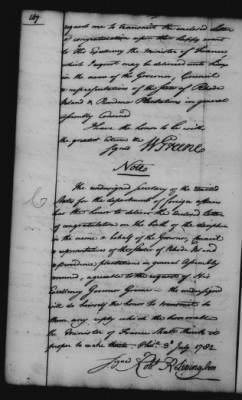 187
request me to transmit the enclosed Letter
of congratulation upon that happy event
to his Excellency the Minister of France
which I request may be delivered unto him
in the name of the Governor, Council
& representatives of the state of Rhode
Island & Providence Plantations in general
assembly convened
I have the honor to be with
the greatest esteem &
Signed W Greene
Note
The undersigned secretary of the United
States for the department of foreign affairs
has the honor to deliver the enclosed letter
of congratulations on the birth of the dauphin
in the name & behalf of the Governor, Council
& representatives of the State of Rhode Island
& providence plantations in general assembly
convened, agreeable to the request of His
Excellency Governor Greene - the undersigned
will do himself the honor to transmit to
them any reply which the honorable
the Minister of France shall think
proper to make thereto Phil. 3d July 1782
Signed Robt R Livingston